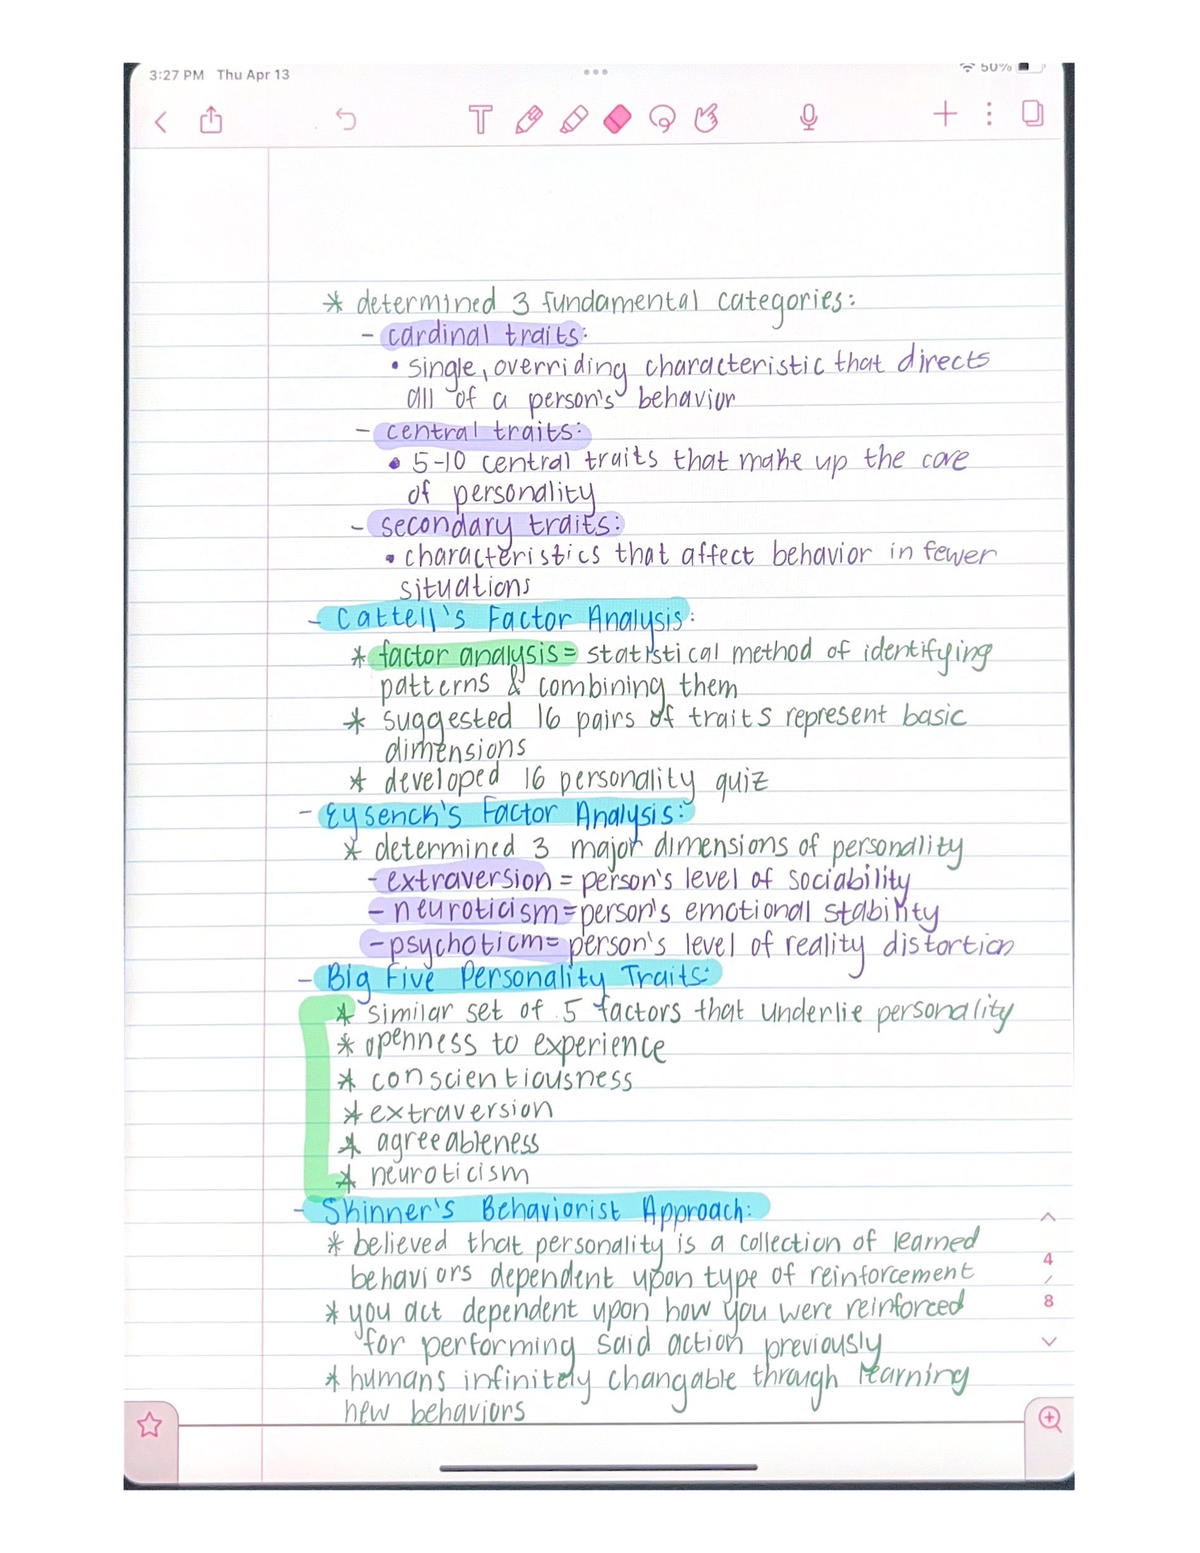 3:27 PM Thu Apr 13
50%
* determined 3 fundamental categories:
- cardinal traits:
• single, overriding characteristic that directs
all of a person's behavior
- central traits:
• 5-10 central traits that make up the core
of personality
- secondary traits:
• characteristics that affect behavior in fewer
situations
- Cattell's Factor Analysis:
* factor analysis = statistical method of identifying
patterns & combining them
* suggested 16 pairs of traits represent basic
dimensions
* developed 16 personality quiz
- Eysenck's Factor Analysis:
* determined 3 major dimensions of personality
- extraversion = person's level of sociability
- neuroticism = person's emotional stability
- psychoticm = person's level of reality distortion
- Big Five Personality Traits:
* similar set of 5 factors that underlie personality
* openness to experience
* conscientiousness
* extraversion
* agreeableness
* neuroticism
- Skinner's Behaviorist Approach:
* believed that personality is a collection of learned
behaviors dependent upon type of reinforcement
* you act dependent upon how you were reinforced
for performing said action previously
* humans infinitely changable through learning
new behaviors
4
/
8